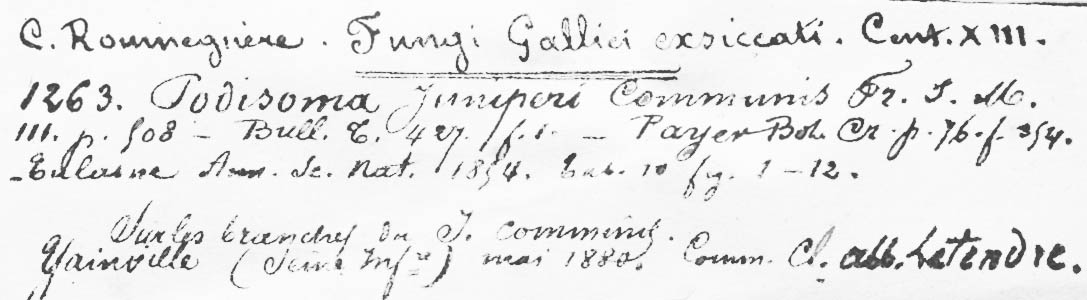 C. Roumeguère. Fungi Gallici exsiccati. Cent. XIII.
1263. Podisoma Juniperi Communis Fr. S. M.
III. p. 508 – Bull. T. 427. f. 1. – Payer Bot. Cr. p. 76. f. 354.
– Tulasne Ann. Sc. Nat. 1854. tab. 10 fig. 1–12.
Sur les branches du J. communis.
Yainville (Seine Infre) mai 1880. Comm. Cl. abb. Letendre.